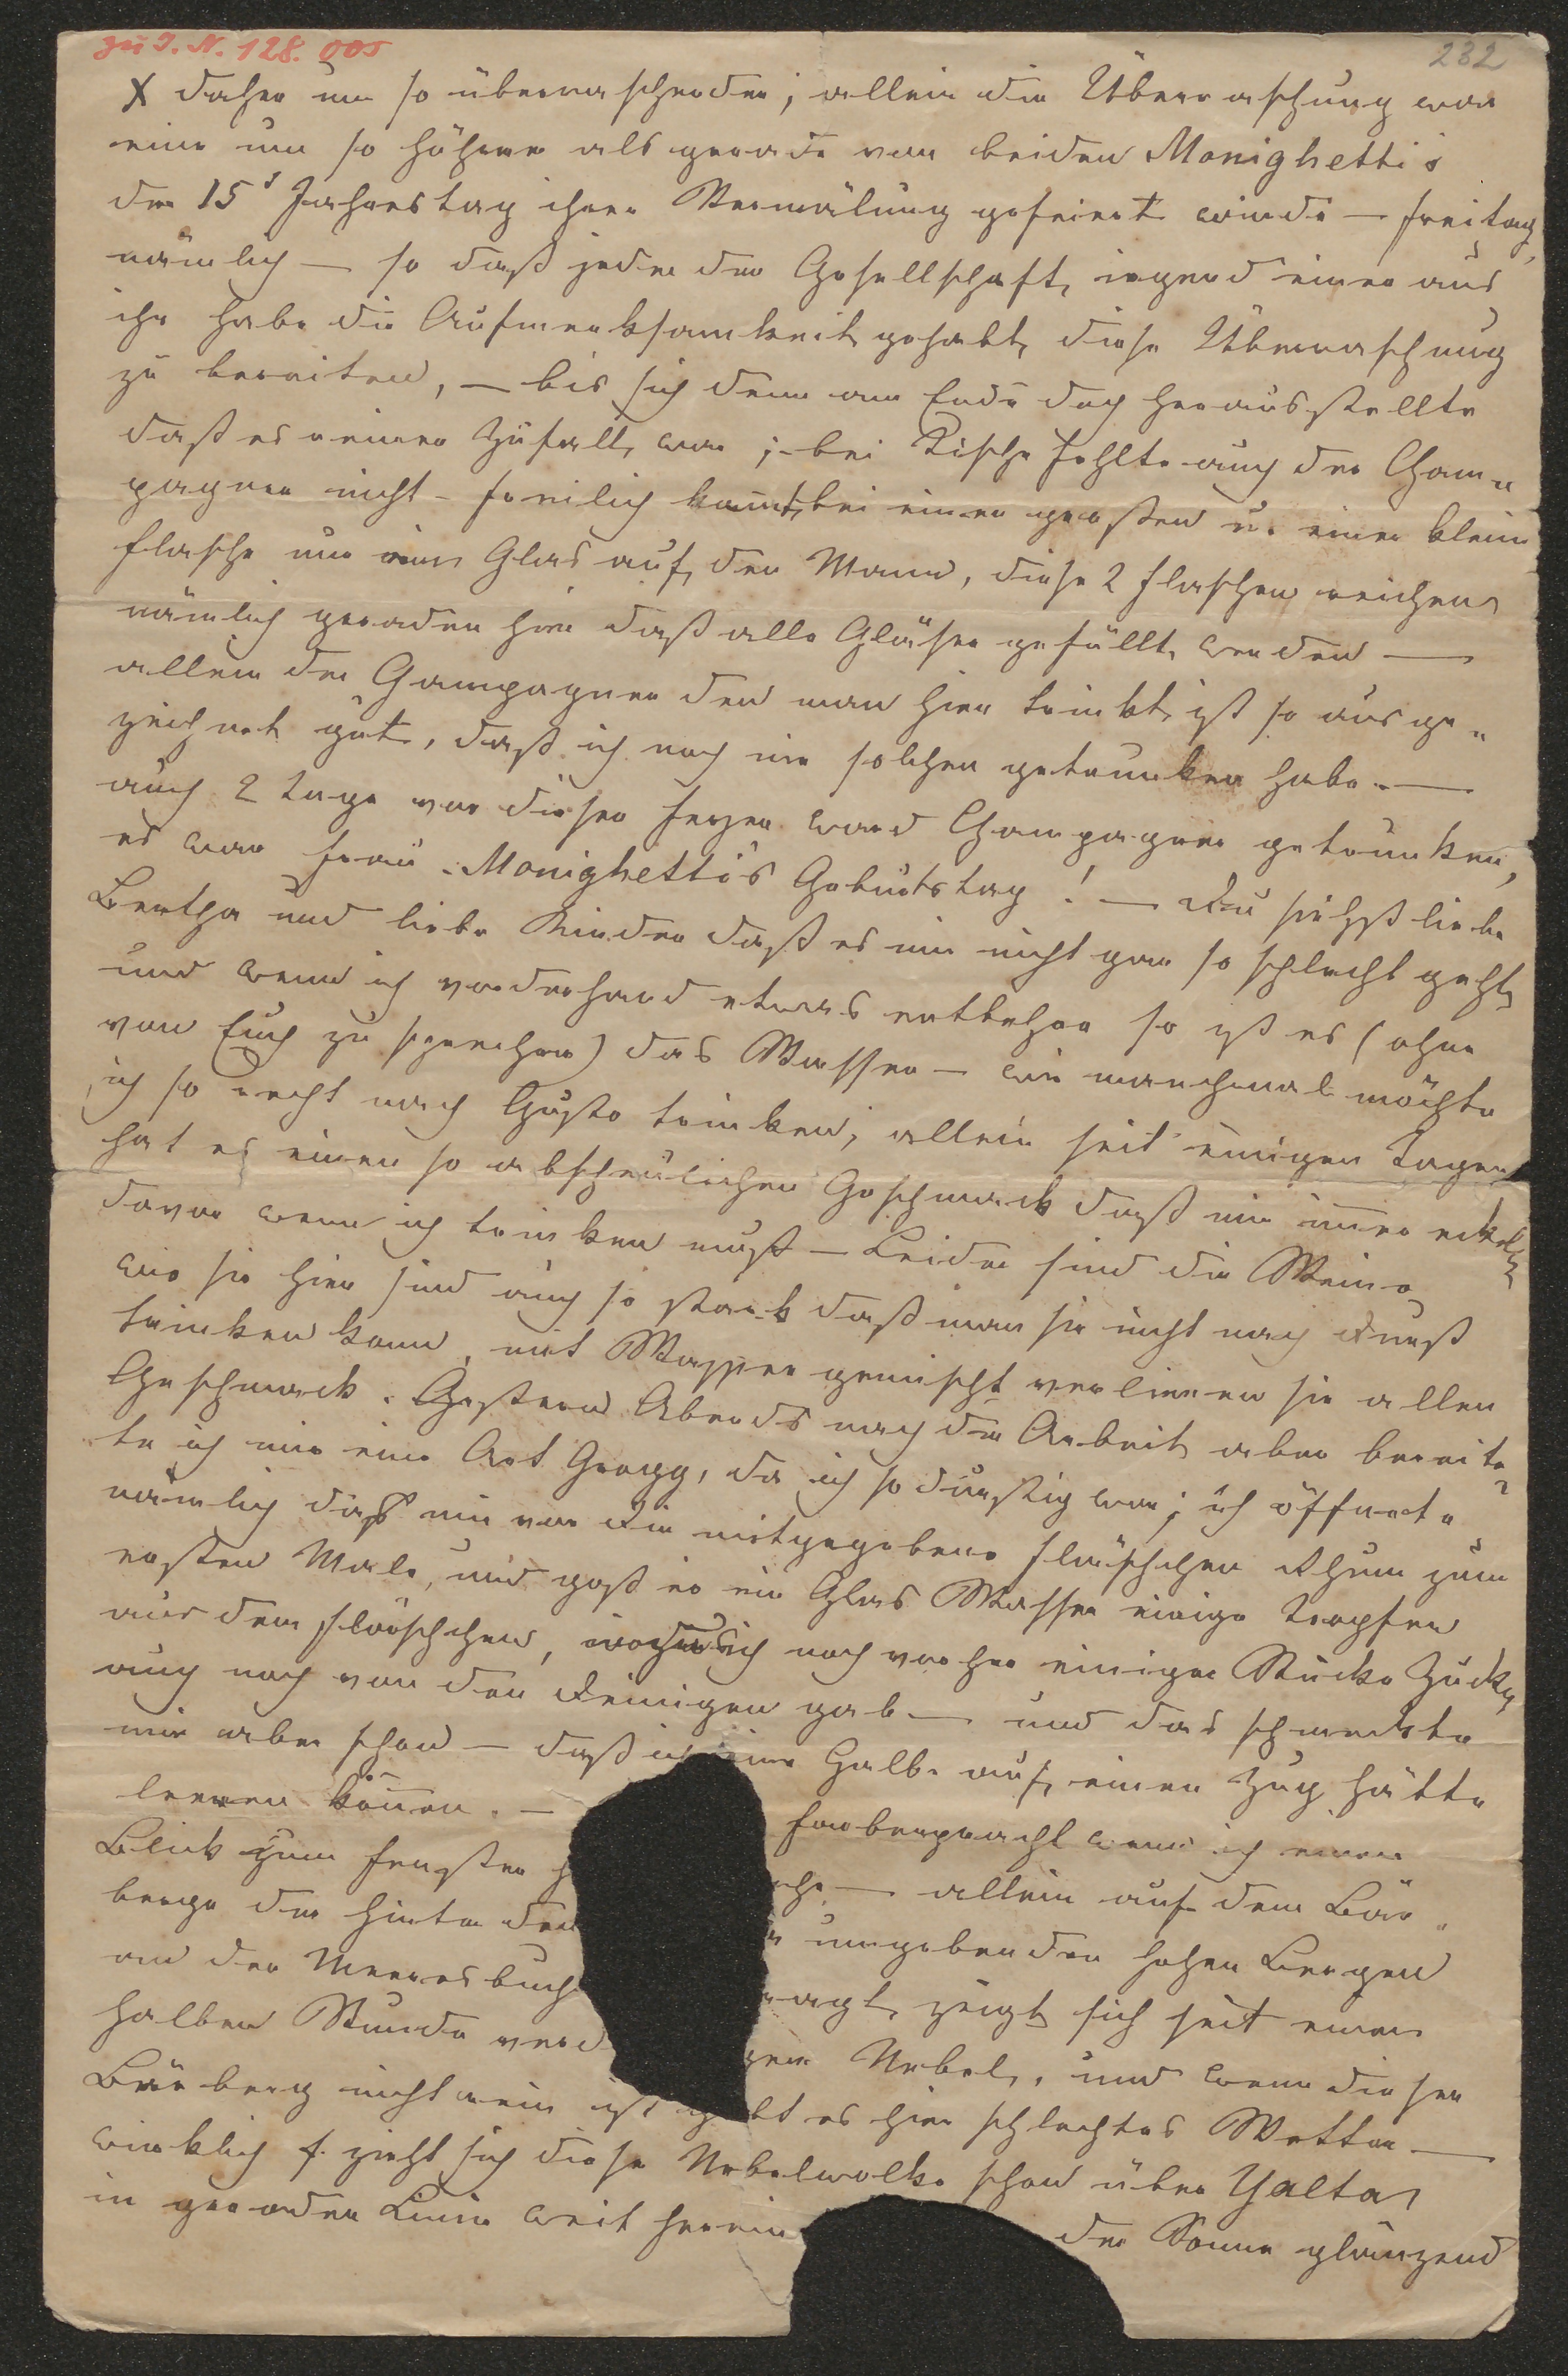 zu I. N. 128.005
232
X daher um so überraschender; allein die Überraschung war
eine um so höhere als gerade von beiden Monighetti's
der 15t Jahrestag ihrer Vermälung gefeiert wurde — Freitag
nämlich — so daß jeder der Gesellschaft, irgend einer aus
ihr habe die Aufmerksamkeit gehabt, diese Überraschung
zu bereiten, — bis sich denn am Ende doch herausstellte
daß es reiner Zufall war; — bei Tische fehlte auch der Cham-
pagner nicht — freilich kommt bei einer großen u. einer klein
Flasche nur ein Glas auf den Mann, diese 2 Flaschen reichen
nämlich gerade hin daß alle Gläser gefüllt werden —
allein der Champagner den man hier trinkt ist so ausge-
zeichnet gut, daß ich noch nie solchen getrunken habe. —
auch 2 Tage vor dieser Feyer ward Champagner getrunken,
es war Frau Monighetti's Geburtstag! — Du siehst liebe
Bertha und liebe Kinder daß es mir nicht gar so schlecht geht
und wenn ich vorderhand etwas entbehre so ist es (ohne
von Euch zu sprechen) das Wasser — wie manchmal möchte
ich so recht nach Gusto trinken; allein seit einigen Tagen
hat es einen so abscheulichen Geschmack daß mir immer ekelt
davor wenn ich trinken muß — Leider sind die Weine
wie sie hier sind auch so stark daß man sie nicht nach Durst
trinken kann, mit Wasser gemischt verlieren sie allen
Geschmack. Gestern Abends nach der Arbeit aber bereite-
te ich mir eine Art Grogg, da ich so durstig war; ich öffnete
nämlich daß mir von Dir mitgegebene Fläschchen Rhum zum
ersten Male, und goß in ein Glas Wasser einige Tropfen
aus dem Fläschchen, ich noch vorher einige Stücke Zucker
auch noch von den Deinigen gab — und das schmeckte
mir aber schon — daß ich eine Halbe auf einen Zug hätte
leeren können. — Farbenpracht wenn ich einen
Blick zum Fenster — allein auf dem Bär-
berge der hinter den umgebenden hohen Bergen
an der Meeresbuch ragt, zeigt sich seit einer
halben Stunde Nebel, und wenn dieser
Bärberg nicht rein ist gibt es hier schlechtes Wetter —
wirklich f. zieht sich diese Nebelwolke schon über Yalta
in gerader Linie weit herein der Sonne glänzend